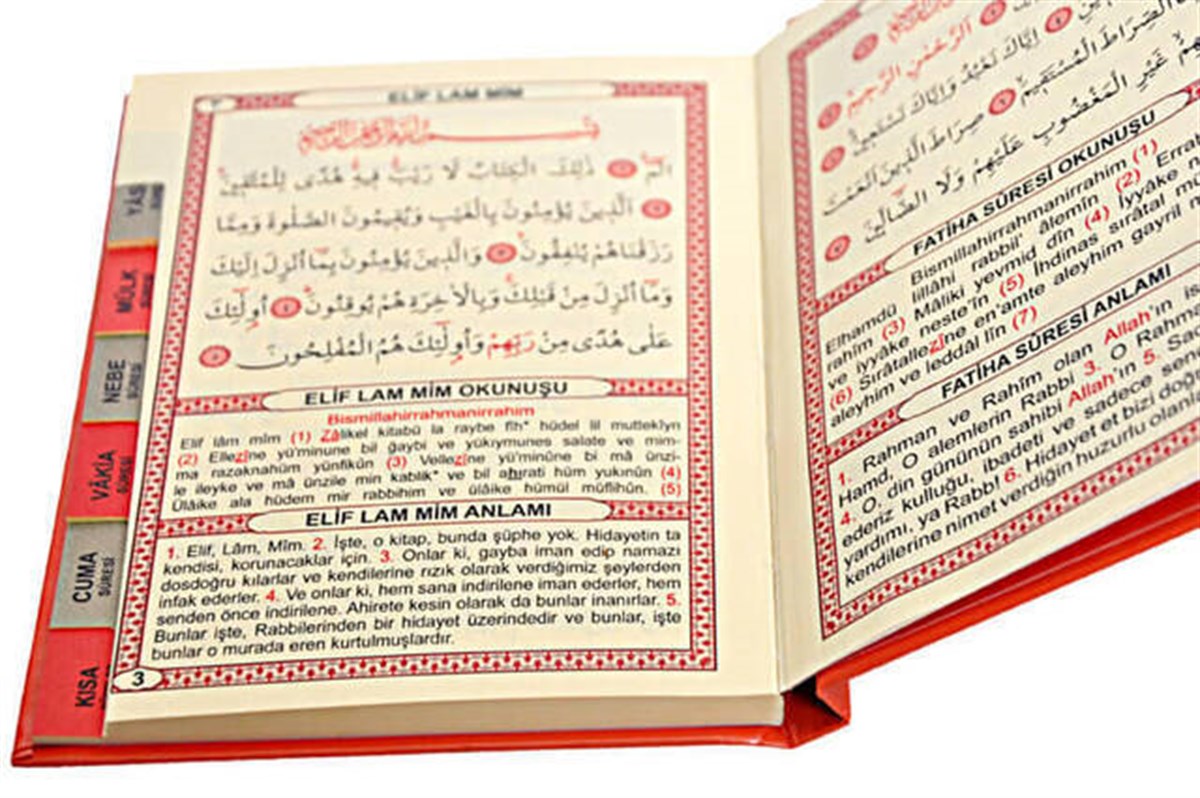 ELİF LAM MİM
الم ذلِكَ الْكِتَابُ لَا رَيْبَ فِيهِ هُدًى لِلْمُتَّقِينَ
اَلَّذِينَ يُؤْمِنُونَ بِالْغَيْبِ وَيُقِيمُونَ الصَّلٰوةَ وَمِمَّا
رَزَقْنَاهُمْ يُنْفِقُونَ وَالَّذِينَ يُؤْمِنُونَ بِمَا اُنْزِلَ اِلَيْكَ
وَمَا اُنْزِلَ مِنْ قَبْلِكَ وَبِالْاٰخِرَةِ هُمْ يُوقِنُونَ اُولٰئِكَ
عَلٰى هُدًى مِنْ رَبِّهِمْ وَاُولٰئِكَ هُمُ الْمُفْلِحُونَ
ELİF LAM MİM OKUNUŞU
Bismillahirrahmanirrahim
Elif lâm mîm (1) Zâlikel kitabü la raybe fîh* hüdel lil muttekîyn
(2) Ellezîne yü'minune bil ğaybi ve yükıymunes salate ve mim-
ma razaknahüm yünfikûn (3) Vellezîne yü'minûne bi mâ ünzi-
le ileyke ve mâ ünzile min kablik* ve bil ahırati hüm yukınûn (4)
Ülâike ala hüdem mir rabbihim ve ülâike hümül müflihûn. (5)
ELİF LAM MİM ANLAMI
1. Elif, Lâm, Mîm. 2. İşte, o kitap, bunda şüphe yok. Hidayetin ta
kendisi, korunacaklar için. 3. Onlar ki, gayba iman edip namazı
dosdoğru kılarlar ve kendilerine rızık olarak verdiğimiz şeylerden
infak ederler. 4. Ve onlar ki, hem sana indirilene iman ederler, hem
senden önce indirilene. Ahirete kesin olarak da bunlar inanırlar. 5.
Bunlar işte, Rabbilerinden bir hidayet üzerindedir ve bunlar, işte
bunlar o murada eren kurtulmuşlardır.
3
YÂS
MÜLK
SÛRESİ
NEBE
SÛRESİ
VÂKIA
SÛRESİ
CUMA
SÛRESİ
KISA
اَلرَّحْمٰنِ الرَّحِيمِ
اِيَّاكَ نَعْبُدُ وَاِيَّاكَ نَسْتَعِينُ
الصِّرَاطَ الْمُسْتَقِيمَ صِرَاطَ الَّذِينَ اَنْعَمْتَ
غَيْرِ الْمَغْضُوبِ عَلَيْهِمْ وَلَا الضَّالِّينَ
FATİHA SÛRESİ OKUNUŞU
Bismillahirrahmanirrahim (1)
Elhamdü lillâhi rabbil' âlemîn (2) Errah
rahîm (3) Mâliki yevmid dîn (4) İyyâke n
ve iyyâke neste'în (5) İhdinas sırâtal mü
(6) Sırâtallezîne en'amte aleyhim gayril m
aleyhim ve leddâl lîn (7)
FATİHA SÛRESİ ANLAMI
1. Rahman ve Rahîm olan Allah'ın is
Hamd, O alemlerin Rabbi 3. O Rahma
4. O, din gününün sahibi Allah'ın 5. Sa
ederiz kulluğu, ibadeti ve sadece sen
yardımı, ya Rabbi 6. Hidayet et bizi doğ
kendilerine nimet verdiğin huzurlu olanla